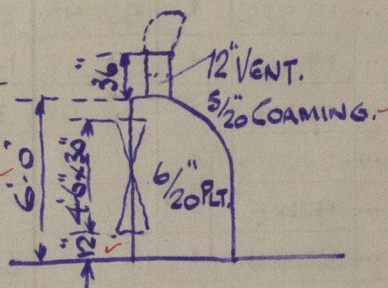 36"
12" VENT.
5/20" COAMING.
6'-0"
4'6"x30"
6/20" PLT.
12"